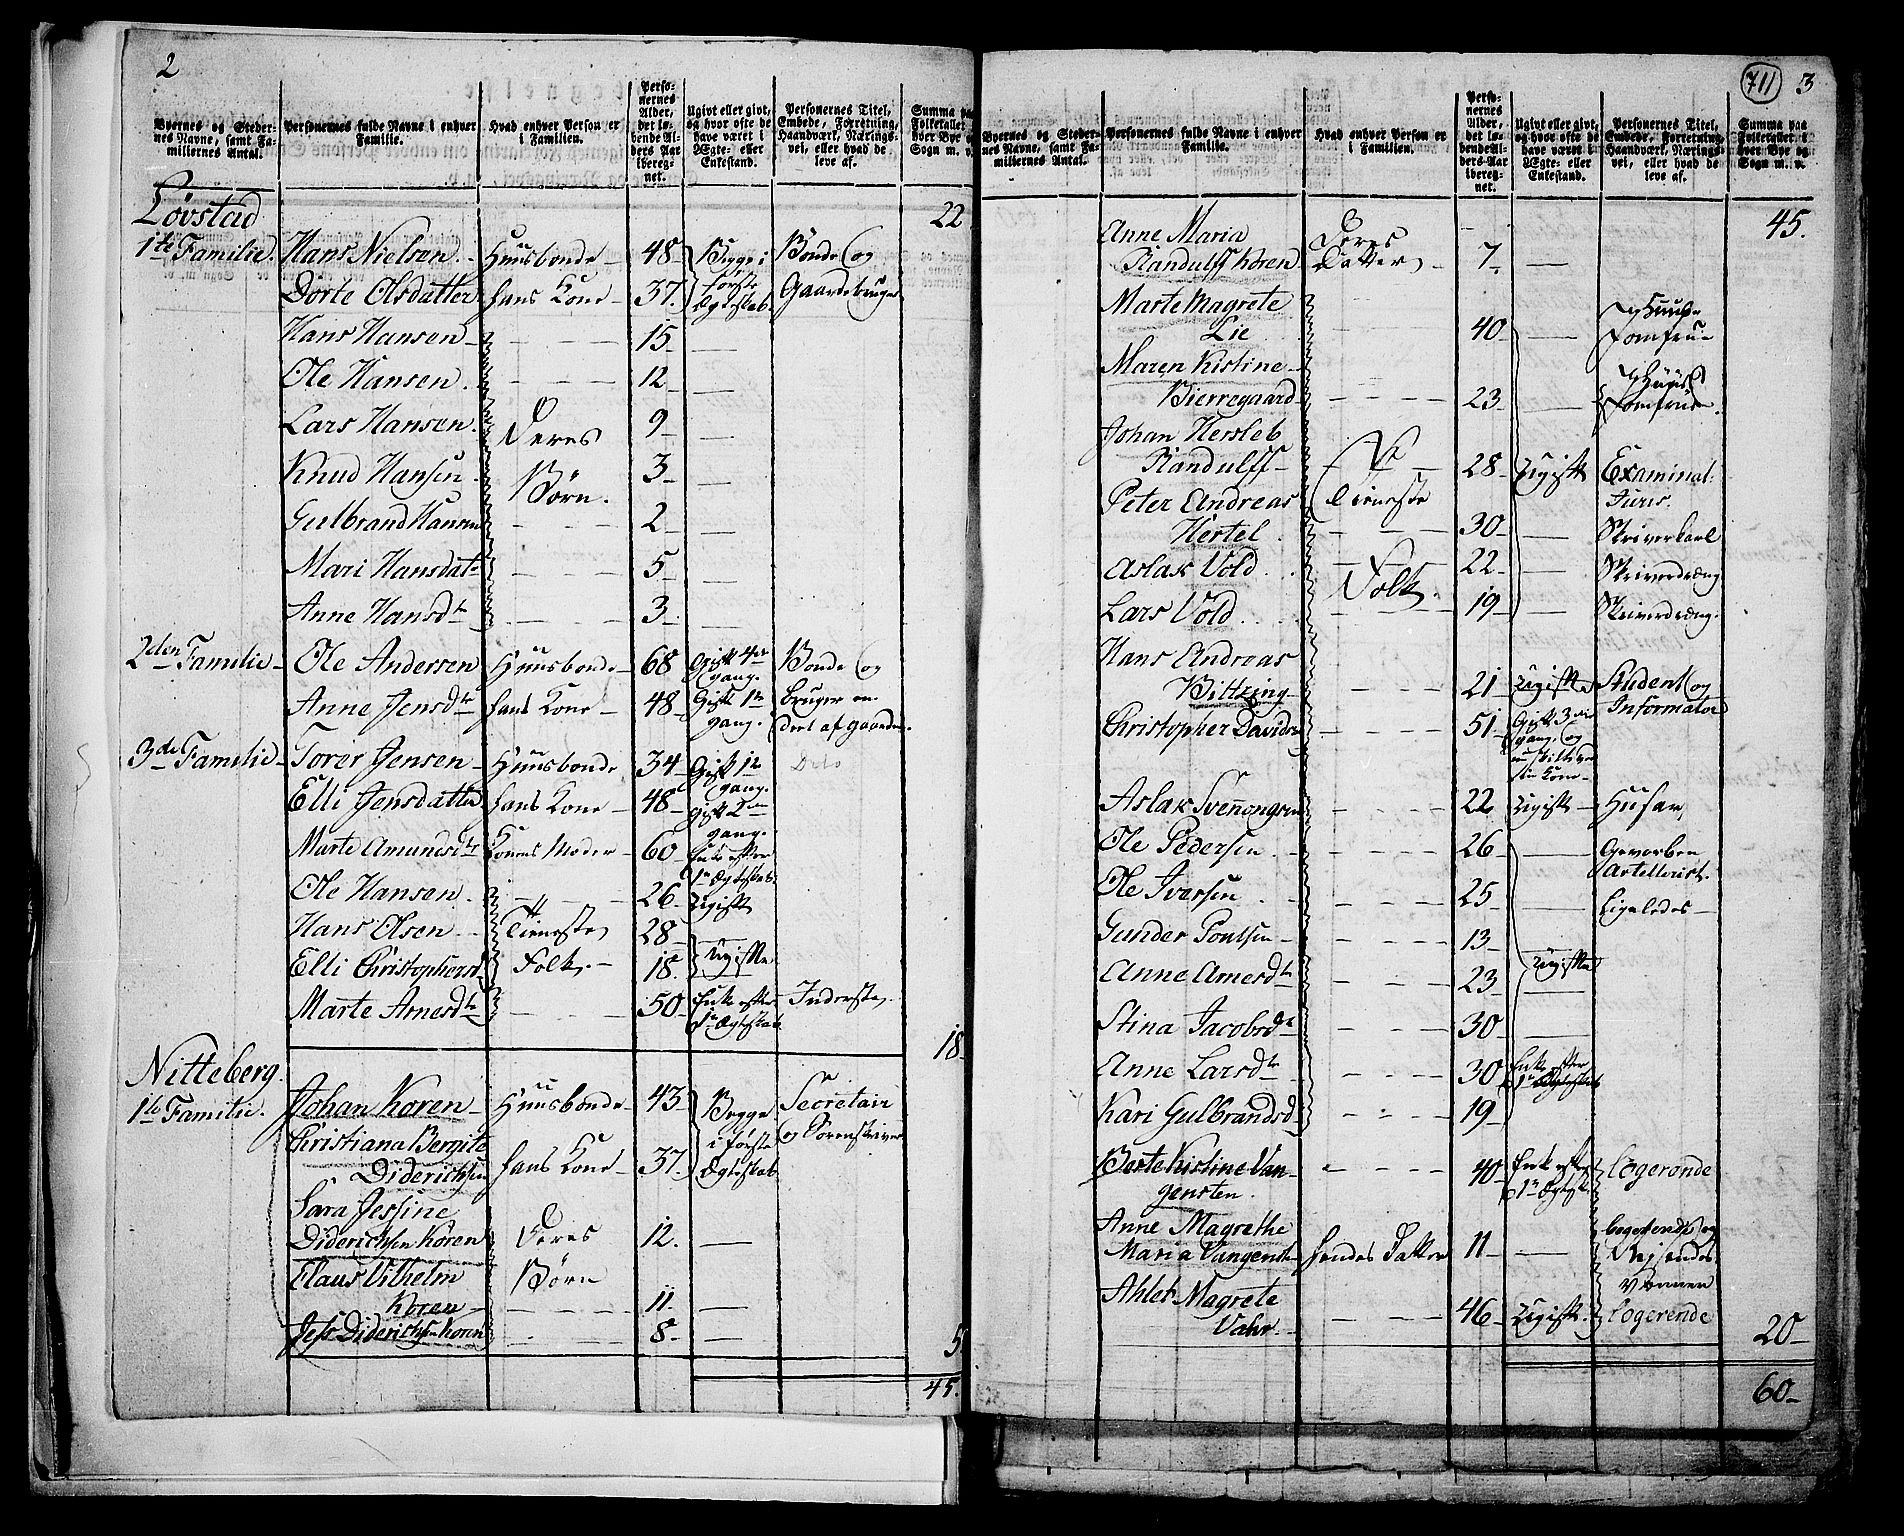 2
Byernes og Stedernes Navne, samt Familiernes Antal.
Personernes fulde Navne i enhver Familie.
Hvad enhver Person er i Familien.
Personernes Alder, det løbende Alders Aar iberegnet.
Ugivt eller givt, og hvor ofte de have været i Ægte- eller Enkestand.
Personernes Titel, Embede, Forretning, Haandværk, Næringsvei, eller hvad de leve af.
Summa paa Folketallet
Bye og
Sogn m. v.
Løvstad 22
1te Familie. Hans Nielsen Huusbonde 48 Begge i første Ægteskab Bonde og Gaardbruger
Dorte Olsdatter hans Kone 37
Hans Hansen 15
Ole Hansen 12
Lars Hansen Deres 9
Knud Hansen Børn. 3
Gulbrand Hansen 2
Mari Hansdatr 5
Anne Hansdtr 3
2den Familie Ole Andersen Huusbonde 68 Gift 4de gang. Bonde og
Anne Jensdtr hans Kone 48 Gift 1te gang. bruger en deel af gaarden.
3de Familie Torer Jensen Huusbonde 34 Gift 1te gang. Dito
Elli Jensdatter hans Kone 48 Gift 2den gang.
Marte Amundsdtr Konens Moder 60 Enke efter 1te Ægteskab.
Ole Hansen 26 Ugift
Hans Olsen Tieneste 28
Elli Christophersd Folk. 18 Ugifte
Marte Arnesdtr 50 Enke efter 1te Ægteskab Inderste
18
Nitteberg.
1te Familie. Johan Koren Huusbonde 43 Begge i første Ægteskab Secretair og Sorenskriver
Christiana Bergite
Diderichsen hans Kone 37
Sara Jessine
Diderichsen Koren Deres 12
Claus Vilhelm Børn
Koren 11
Jess Diderichsen Koren 8
5
45.
711 3
Byernes og Stedernes Navne, samt Familiernes Antal.
Personernes fulde Navne i enhver Familie.
Hvad enhver Person er i Familien.
Personernes Alder, det løbende Alders Aar iberegnet.
Ugivt eller givt, og hvor ofte de have været i Ægte- eller Enkestand.
Personernes Titel, Embede, Forretning, Haandværk, Næringsvei, eller hvad de leve af.
Summa paa Folketallet i hver Bye og Sogn m. v.
45.
Anne Maria Deres
Randulff Koren Datter 7
Marte Magrete
Lie 40 Huus Jomfrue
Maren Kistine
Bierregaard 23 Huus Jomfrue.
Johan Hersleb
Randulff 28 Ugift Examinat: Juris.
Peter Andreas Tieneste
Hertel 30 Skriverkarl
Aslak Vold 22 Skriverdræng
Lars Vold Folk. 19 Skriverdræng.
Hans Andreas
Bittzing 21 Ugift Student og Informator
Christopher Davidsen 51 Gift 3die gang, og
Aslak Svenongsen 22 Ugift Husar,
Ole Pedersen 26 Gevorben Artellerist.
Ole Iversen 25 Ligeledes
Gunder Poulsen 13
Anne Arnesdtr 23 Ugifte
Stina Jacobsdtr 30
Anne Larsdtr 30 Enke efter 1te Ægteskab
Kari Gulbrandsd 19
Berte Kistine Van-
gensten. 40 Enke efter 1te Ægtesk. Logerende
Anne Magrethe
Maria Vangenst hendes Datter 11
Ahlet Magrete
Vahr. 46 Ugift. Logerende
20
60